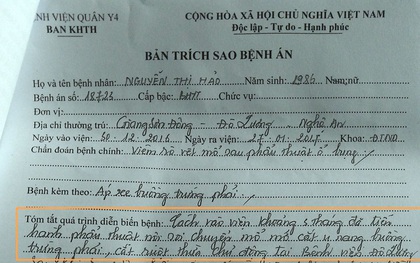 BỆNH VIỆN QUÂN Y4 CỘNG HÒA XÃ HỘI CHỦ NGHĨA VIỆT NAM
BAN KHTH Độc lập - Tự do - Hạnh phúc
BẢN TRÍCH SAO BỆNH ÁN
Họ và tên bệnh nhân: NGUYỄN THỊ HẢO Năm sinh: 1986 Nam; nữ
Bệnh án số: 18723 Cấp bậc: BHYT Chức vụ:
Đơn vị:
Địa chỉ thường trú: Giang Sơn Đông - Đô Lương - Nghệ An
Ngày vào viện: 30-12-2016 Ngày ra viện: 27-01-2017 Khoa:
Chẩn đoán bệnh chính: Viêm dò vết mổ sau phẫu thuật ổ bụng
Bệnh kèm theo: Áp xe buồng trứng phải
Tóm tắt quá trình diễn biến bệnh: Cách vào viện khoảng 3 tháng đã tiến
hành phẫu thuật mổ cắt u nang buồng
trứng phải, cắt ruột thừa chủ động tại Bệnh viện Đô Lương